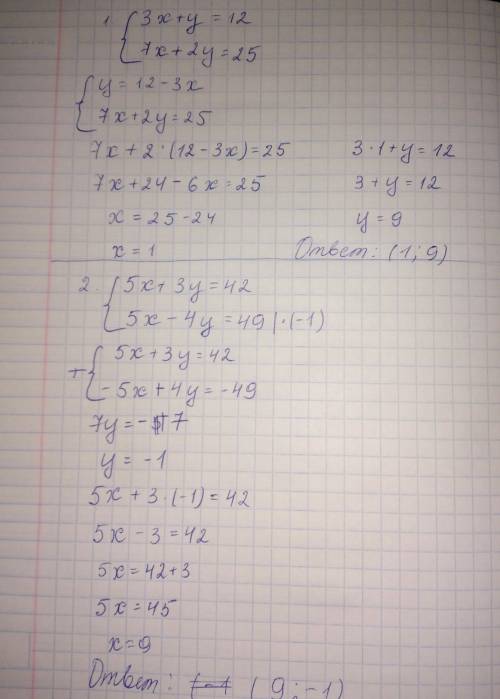 1. { 3x+y=12
7x+2y=25
{ y=12-3x
7x+2y=25
7x+2·(12-3x)=25
7x+24-6x=25
x=25-24
x=1
3·1+y=12
3+y=12
y=9
Ответ: (1; 9)
2. { 5x+3y=42
5x-4y=49 |·(-1)
+ { 5x+3y=42
-5x+4y=-49
7y=-7
y=-1
5x+3·(-1)=42
5x-3=42
5x=42+3
5x=45
x=9
Ответ: (9; -1)